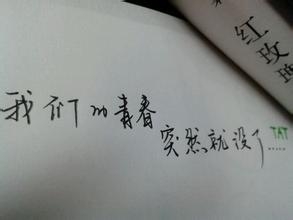 红玫
我们的青春
突然就没了……TAT